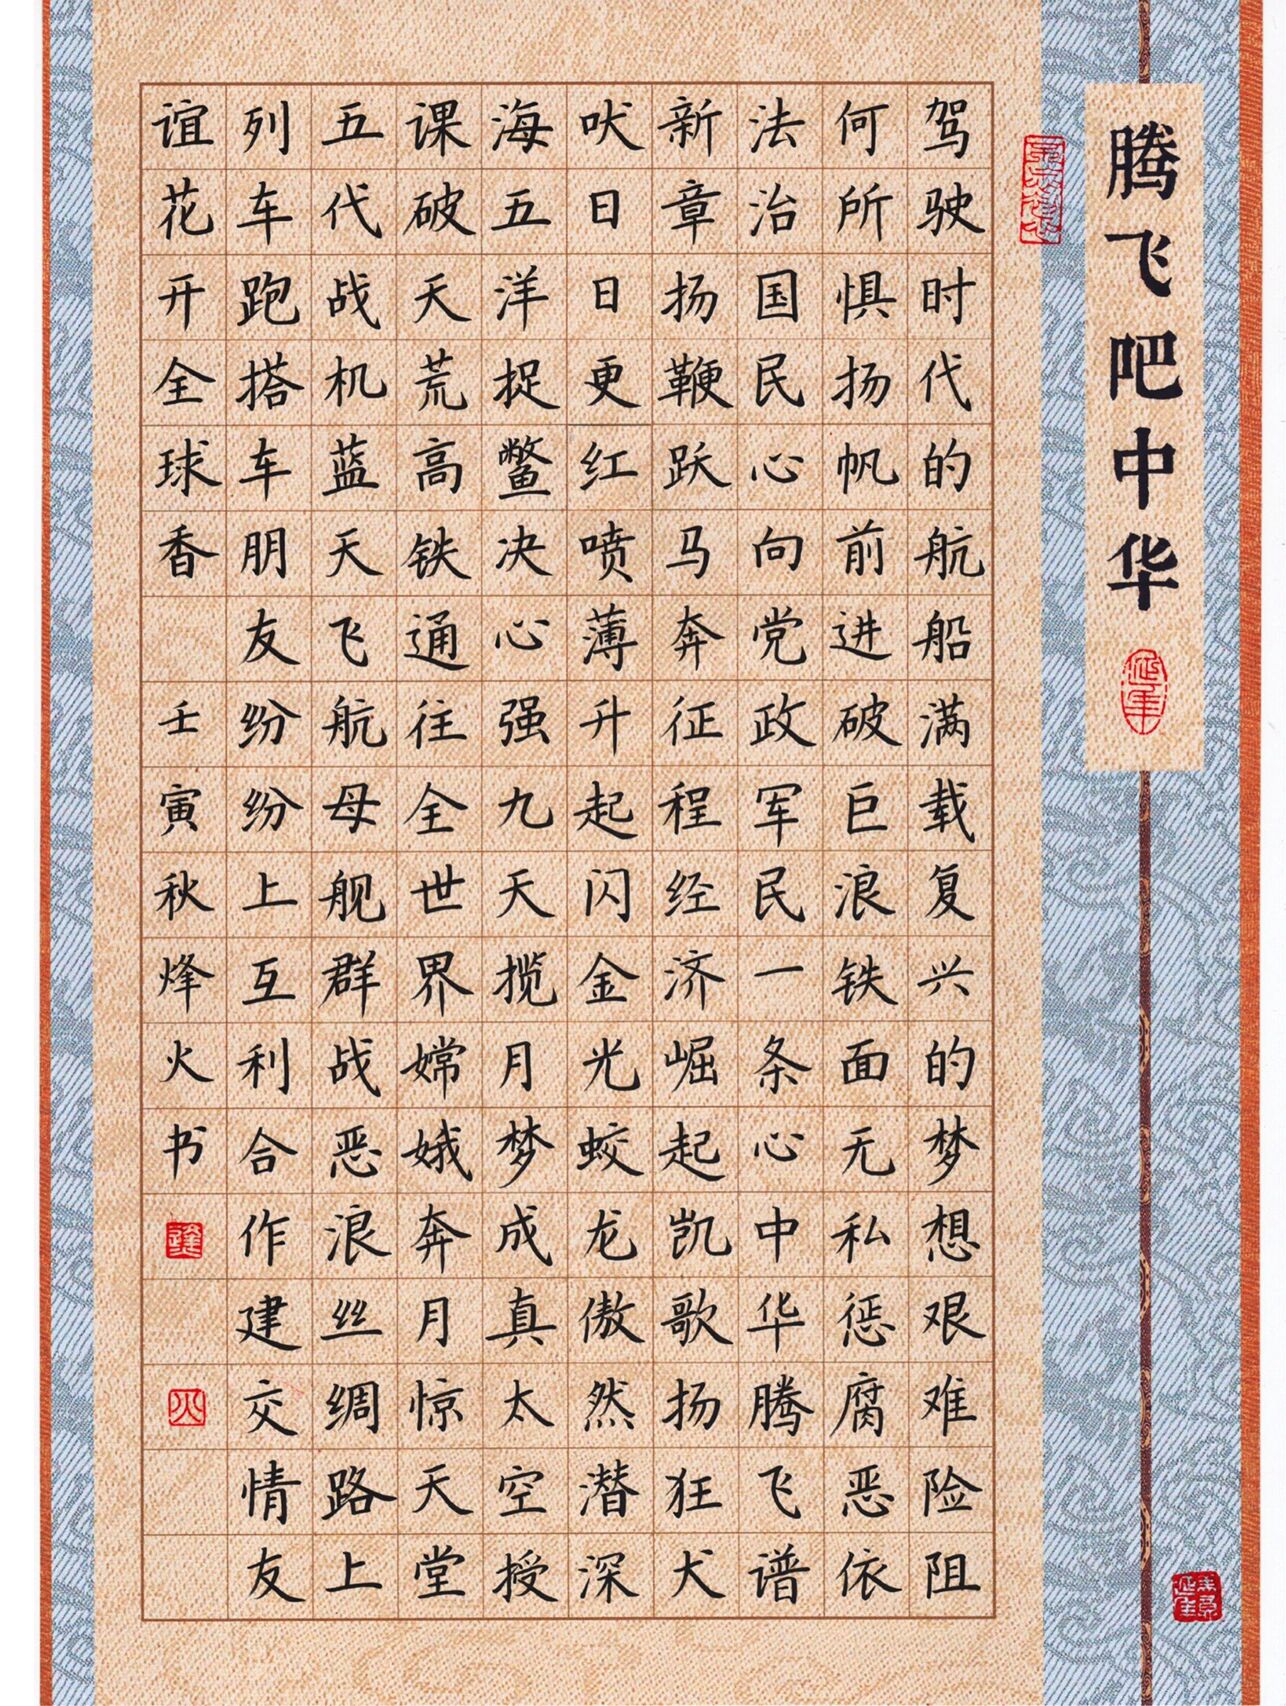 腾飞吧中华
延年
驾驶时代的航船满载复兴的梦想艰难险阻
何所惧扬帆前进破巨浪铁面无私惩腐恶依
法治国民心向党政军民一条心中华腾飞谱
新章扬鞭跃马奔征程经济崛起凯歌扬狂犬
吠日日更红喷薄升起闪金光蛟龙傲然潜深
海五洋捉鳖决心强九天揽月梦成真太空授
课破天荒高铁通往全世界嫦娥奔月惊天堂
五代战机蓝天飞航母舰群战恶浪丝绸路上
列车跑搭车朋友纷纷上互利合作建交情友
谊花开全球香 壬寅秋烽火书
火